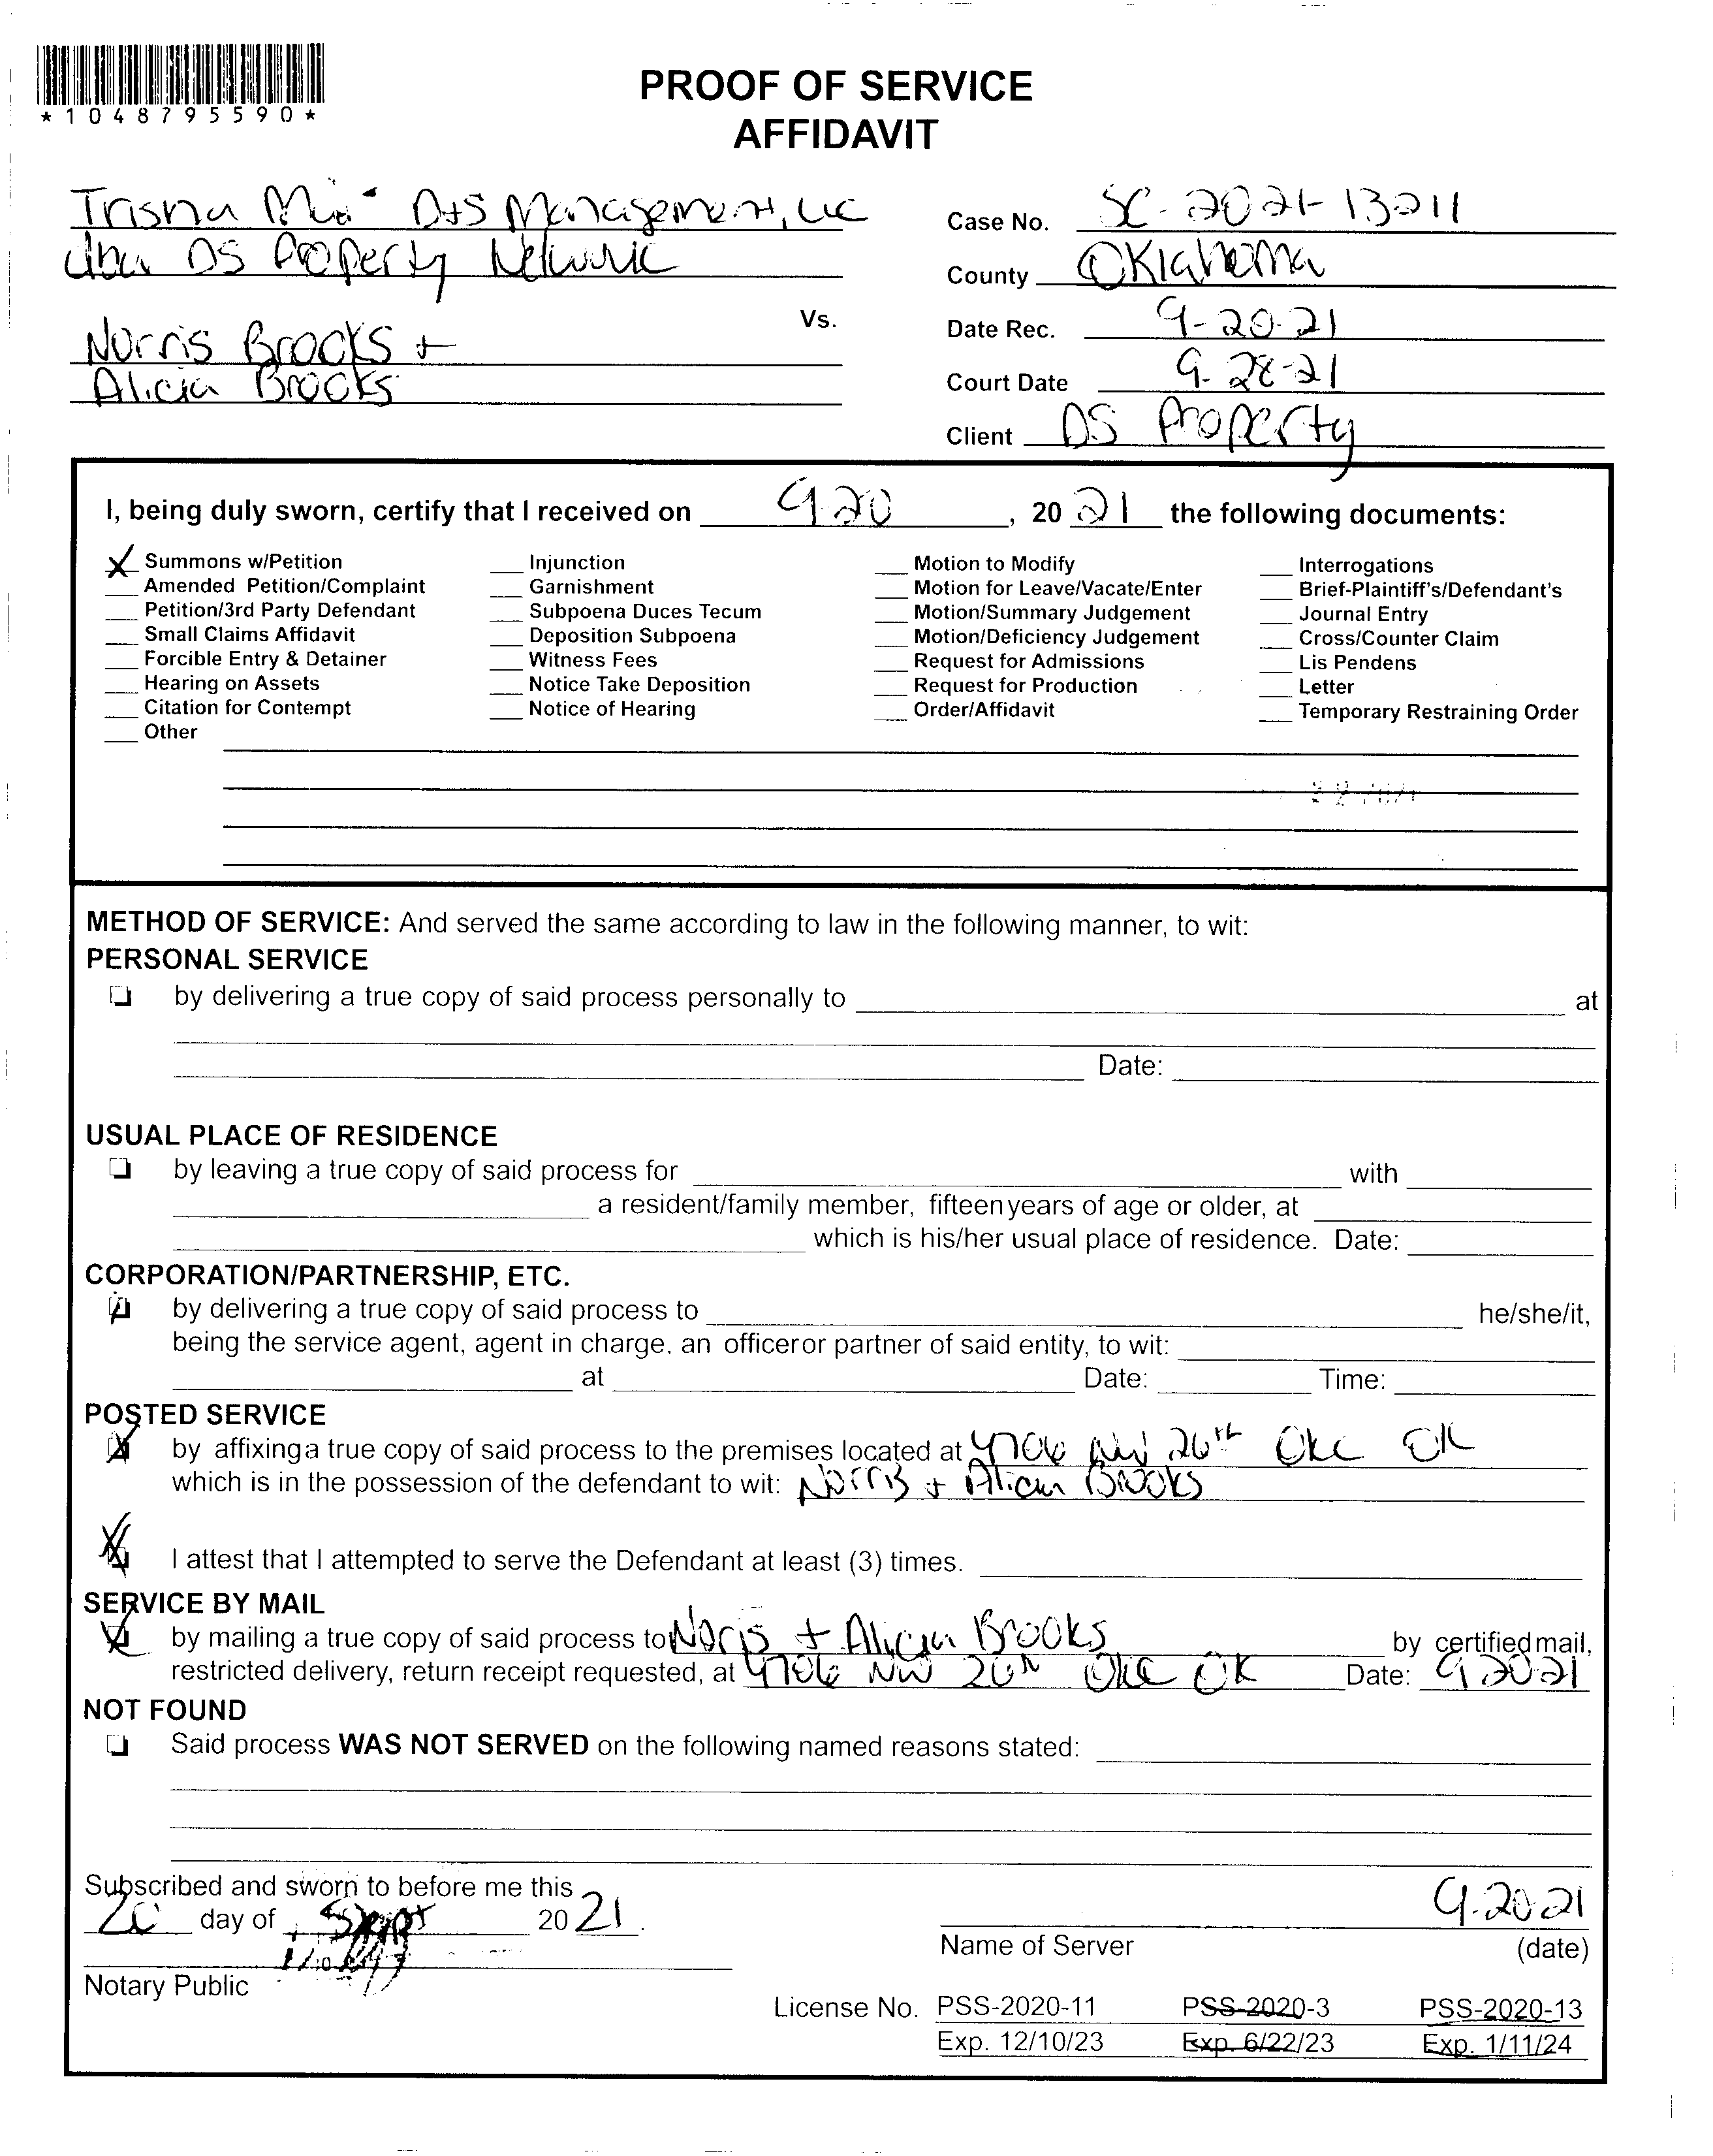 *1048795590*
PROOF OF SERVICE
AFFIDAVIT
D+S Management, LLC
dba DS Property Network
Vs.
Norris Brooks +
Alicia Brooks
Case No. SC-2021-13211
County Oklahoma
Date Rec. 9-20-21
Court Date 9-28-21
Client DS Property
I, being duly sworn, certify that I received on 9-20, 20 21 the following documents:
X Summons w/Petition
Amended Petition/Complaint
Petition/3rd Party Defendant
Small Claims Affidavit
Forcible Entry & Detainer
Hearing on Assets
Citation for Contempt
Other
Injunction
Garnishment
Subpoena Duces Tecum
Deposition Subpoena
Witness Fees
Notice Take Deposition
Notice of Hearing
Motion to Modify
Motion for Leave/Vacate/Enter
Motion/Summary Judgement
Motion/Deficiency Judgement
Request for Admissions
Request for Production
Order/Affidavit
Interrogations
Brief-Plaintiff's/Defendant's
Journal Entry
Cross/Counter Claim
Lis Pendens
Letter
Temporary Restraining Order
METHOD OF SERVICE: And served the same according to law in the following manner, to wit:
PERSONAL SERVICE
by delivering a true copy of said process personally to at
Date:
USUAL PLACE OF RESIDENCE
by leaving a true copy of said process for with
a resident/family member, fifteen years of age or older, at
which is his/her usual place of residence. Date:
CORPORATION/PARTNERSHIP, ETC.
by delivering a true copy of said process to he/she/it,
being the service agent, agent in charge, an officer or partner of said entity, to wit:
at Date: Time:
POSTED SERVICE
X by affixing a true copy of said process to the premises located at 4706 NW 26th OKC OK
which is in the possession of the defendant to wit: Norris + Alicia Brooks
X I attest that I attempted to serve the Defendant at least (3) times.
SERVICE BY MAIL
X by mailing a true copy of said process to Noris + Alicia Brooks by certified mail,
restricted delivery, return receipt requested, at 4706 NW 26th OKC OK Date: 9-20-21
NOT FOUND
Said process WAS NOT SERVED on the following named reasons stated:
Subscribed and sworn to before me this
20 day of Sept 20 21.
Notary Public
9-20-21
Name of Server (date)
License No. PSS-2020-11 PSS-2020-3 PSS-2020-13
Exp. 12/10/23 Exp. 6/22/23 Exp. 1/11/24